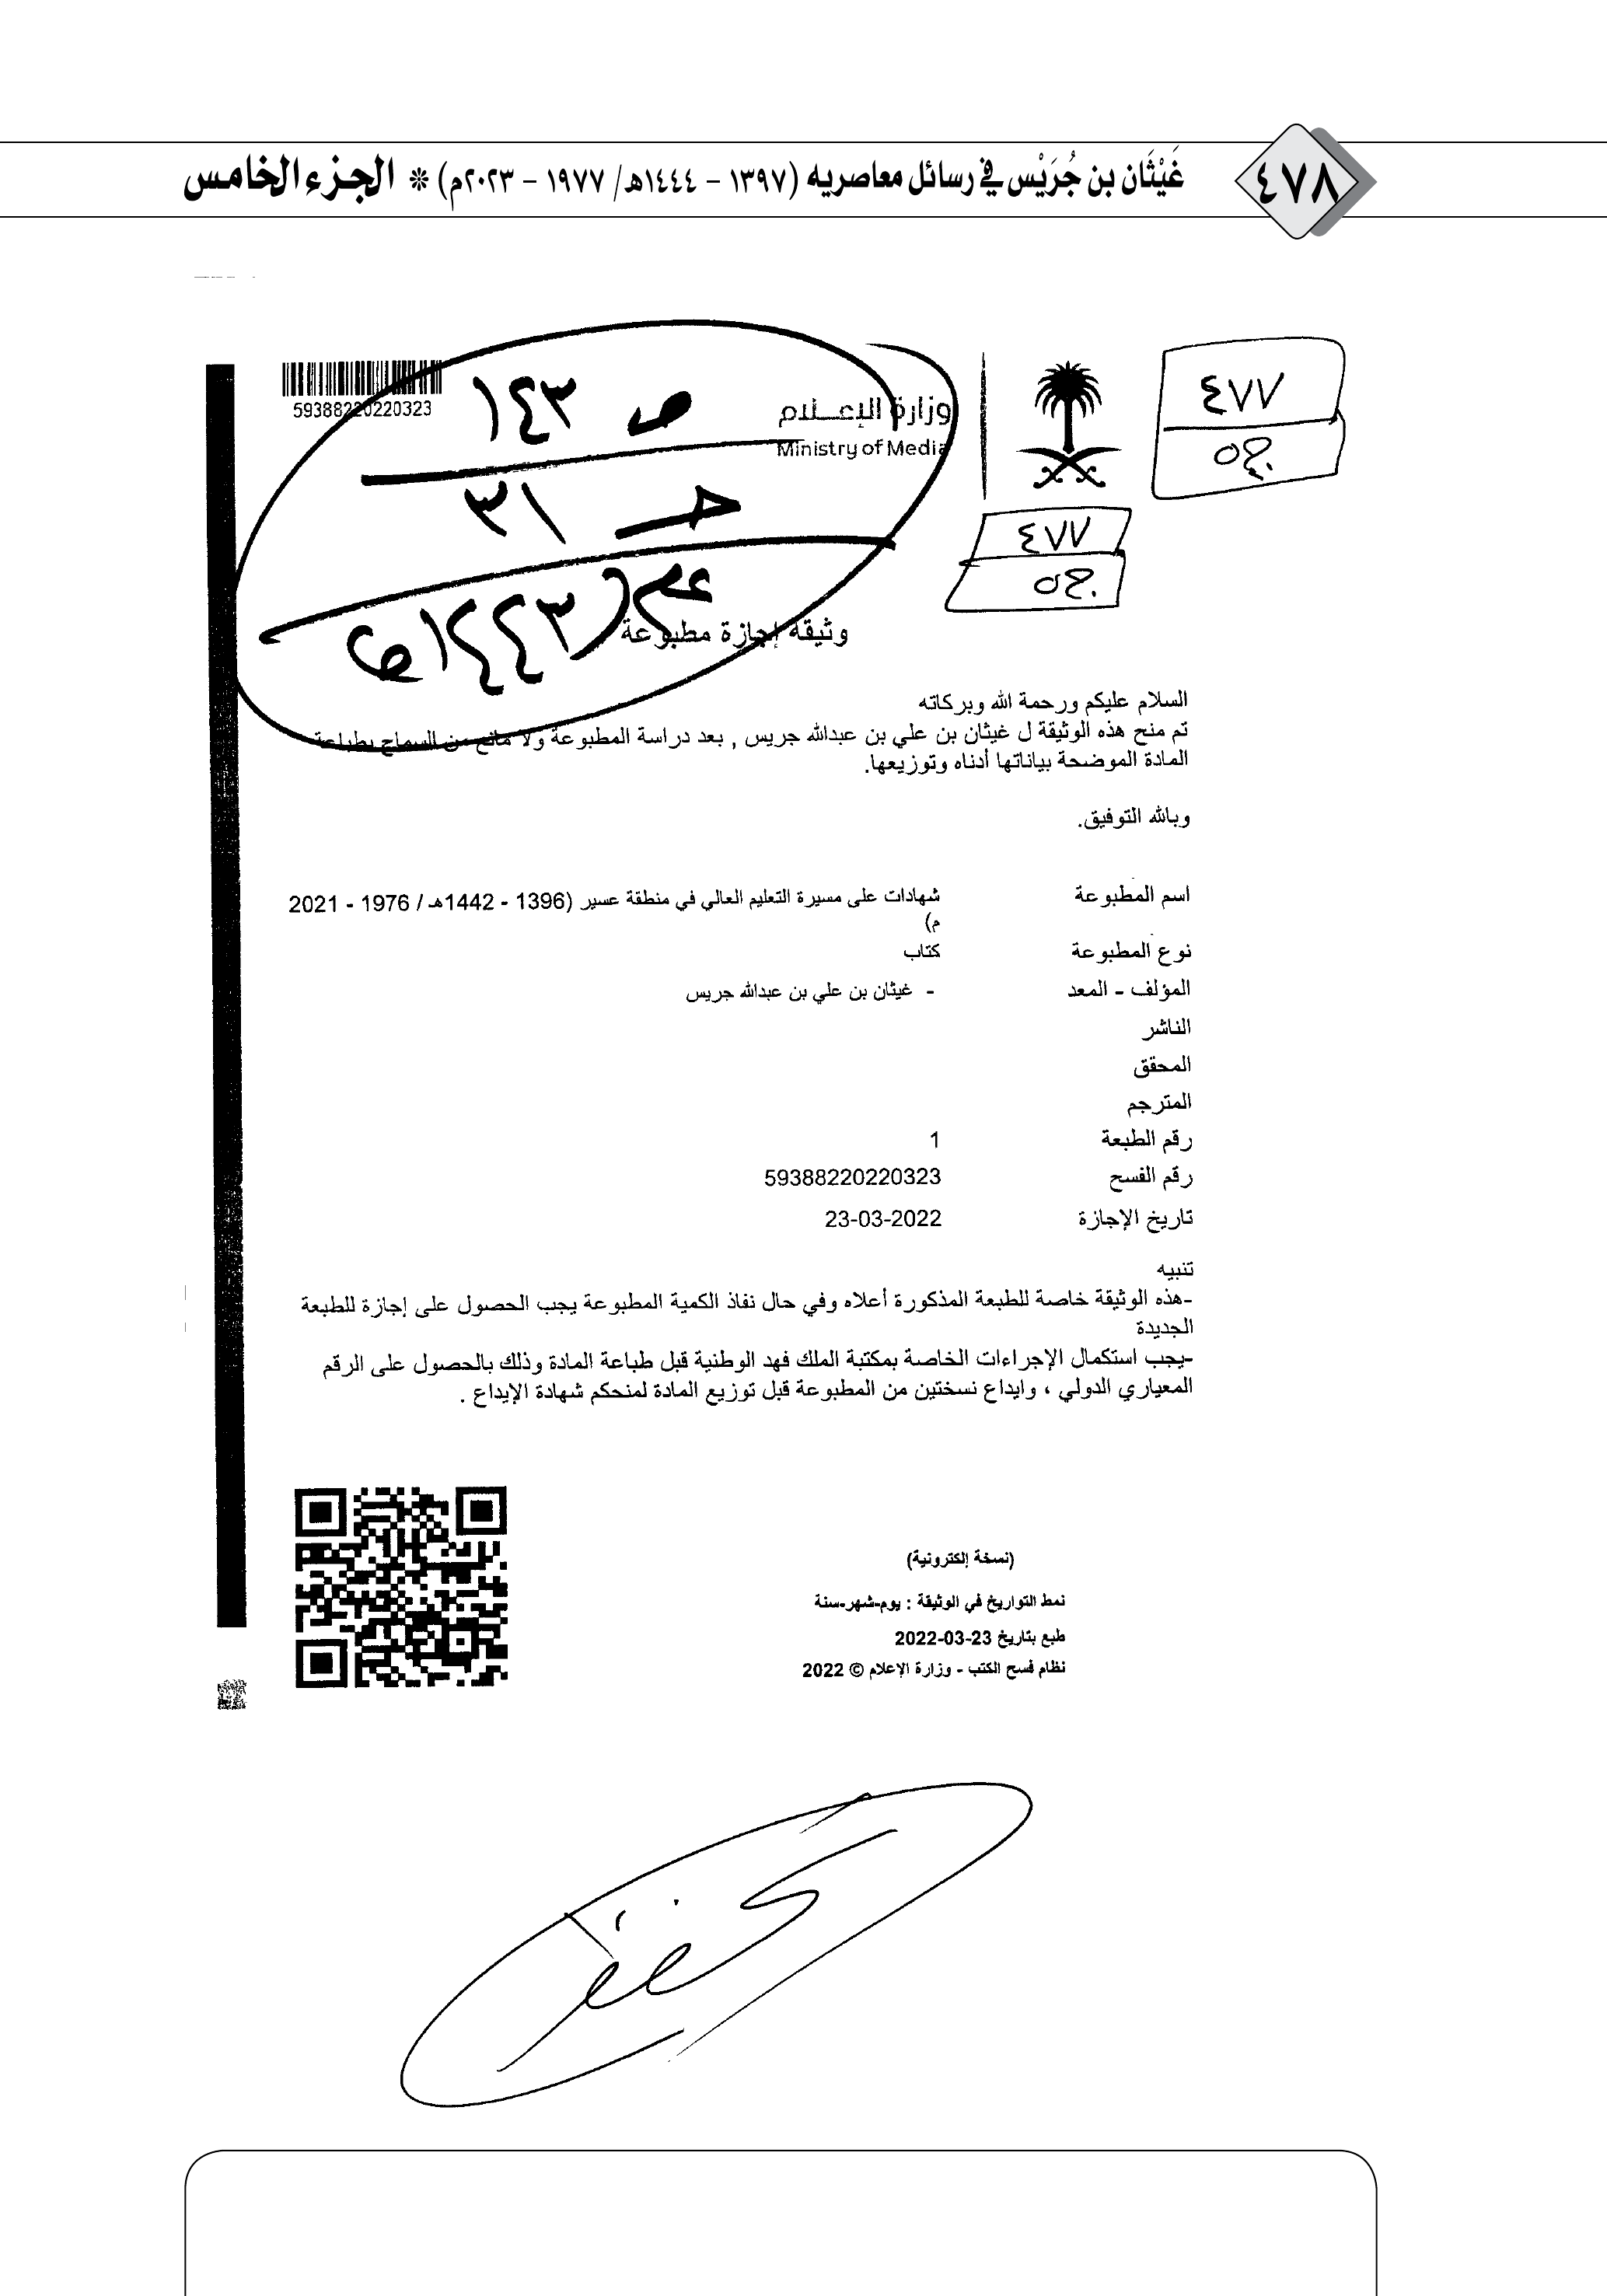 ٤٧٨
غَيْثَان بن جُرَيْس في رسائل معاصريه (١٣٩٧ – ١٤٤٤هـ/ ١٩٧٧ – ٢٠٢٣م) * الجزء الخامس
59388220220323
وزارة الإعلام
Ministry of Media
٤٧٧
ج٥
٤٧٧
ج٥
ص ١٤٣
٣١
وثيقة إجازة مطبوعة
السلام عليكم ورحمة الله وبركاته
تم منح هذه الوثيقة ل غيثان بن علي بن عبدالله جريس , بعد دراسة المطبوعة ولا مانع من السماح بطباعة
المادة الموضحة بياناتها أدناه وتوزيعها.
وبالله التوفيق.
اسم المطبوعة شهادات على مسيرة التعليم العالي في منطقة عسير (1396 - 1442هـ / 1976 - 2021
م)
نوع المطبوعة كتاب
المؤلف - المعد - غيثان بن علي بن عبدالله جريس
الناشر
المحقق
المترجم
رقم الطبعة 1
رقم الفسح 59388220220323
تاريخ الإجازة 23-03-2022
تنبيه
-هذه الوثيقة خاصة للطبعة المذكورة أعلاه وفي حال نفاذ الكمية المطبوعة يجب الحصول على إجازة للطبعة
الجديدة
-يجب استكمال الإجراءات الخاصة بمكتبة الملك فهد الوطنية قبل طباعة المادة وذلك بالحصول على الرقم
المعياري الدولي ، وايداع نسختين من المطبوعة قبل توزيع المادة لمنحكم شهادة الإيداع .
(نسخة إلكترونية)
نمط التواريخ في الوثيقة : يوم-شهر-سنة
طبع بتاريخ 23-03-2022
نظام فسح الكتب - وزارة الإعلام © 2022